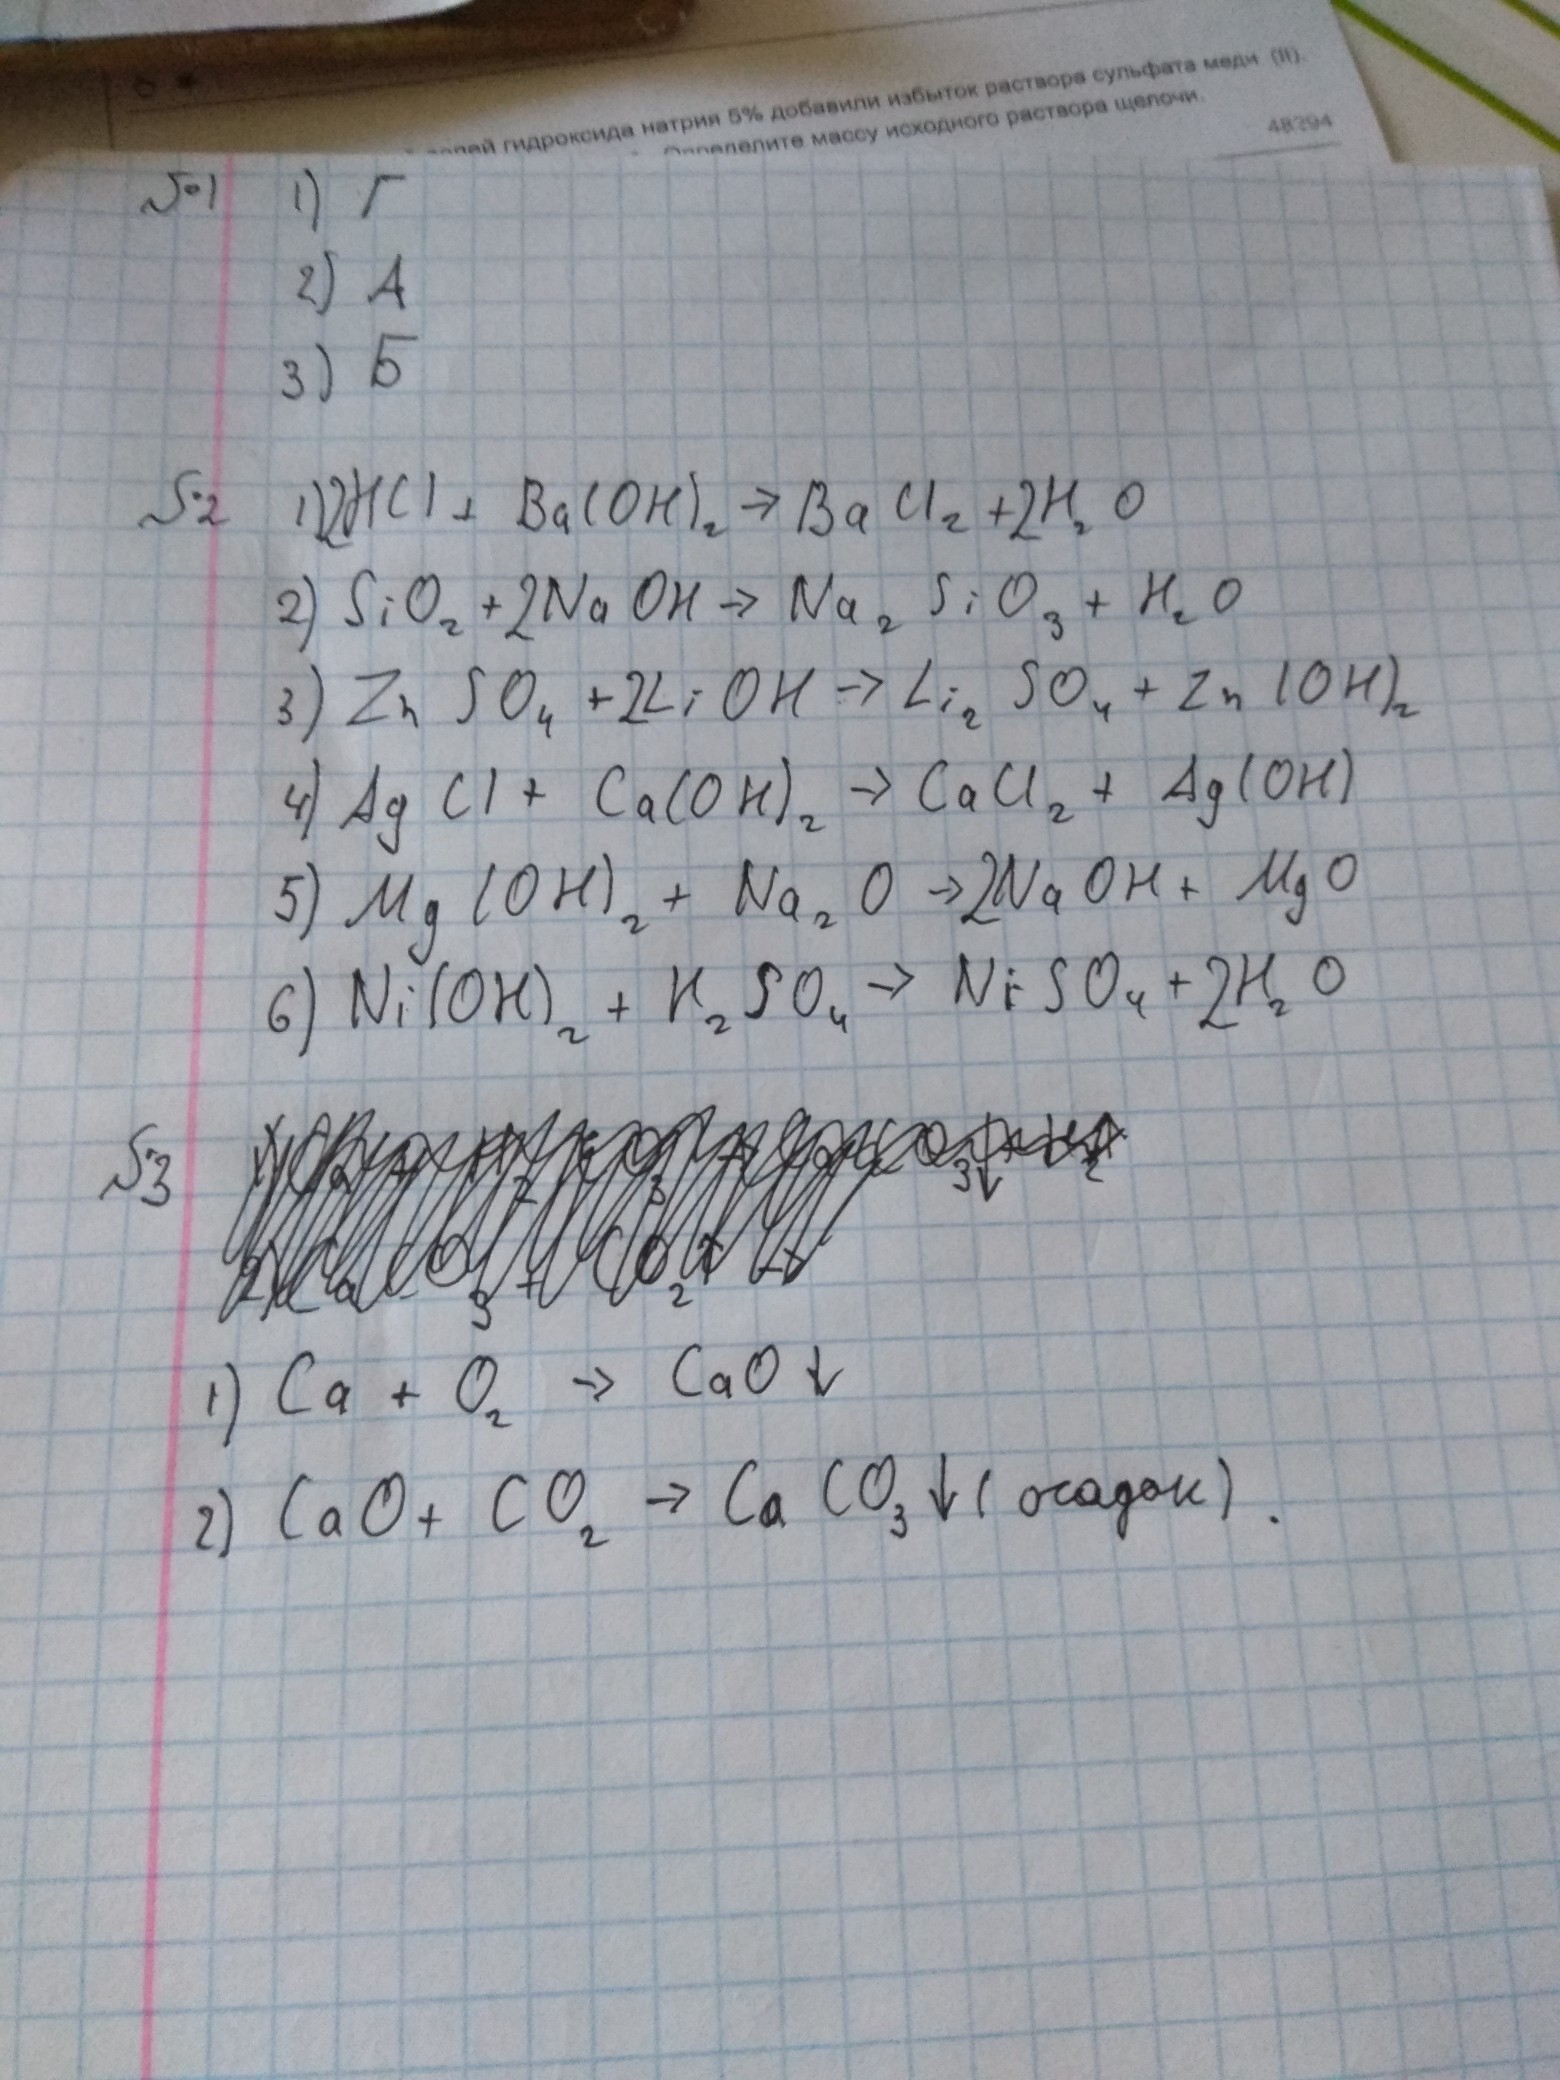 гидроксида натрия 5% добавили избыток раствора сульфата меди (II).
Определите массу исходного раствора щелочи.
48294
№1 1) Г
2) А
3) Б
№2 1) 2HCl + Ba(OH)₂ → BaCl₂ + 2H₂O
2) SiO₂ + 2NaOH → Na₂SiO₃ + H₂O
3) ZnSO₄ + 2LiOH → Li₂SO₄ + Zn(OH)₂
4) AgCl + Ca(OH)₂ → CaCl₂ + Ag(OH)
5) Mg(OH)₂ + Na₂O → 2NaOH + MgO
6) Ni(OH)₂ + H₂SO₄ → NiSO₄ + 2H₂O
№3
1) Ca + O₂ → CaO↓
2) CaO + CO₂ → CaCO₃↓ (осадок).